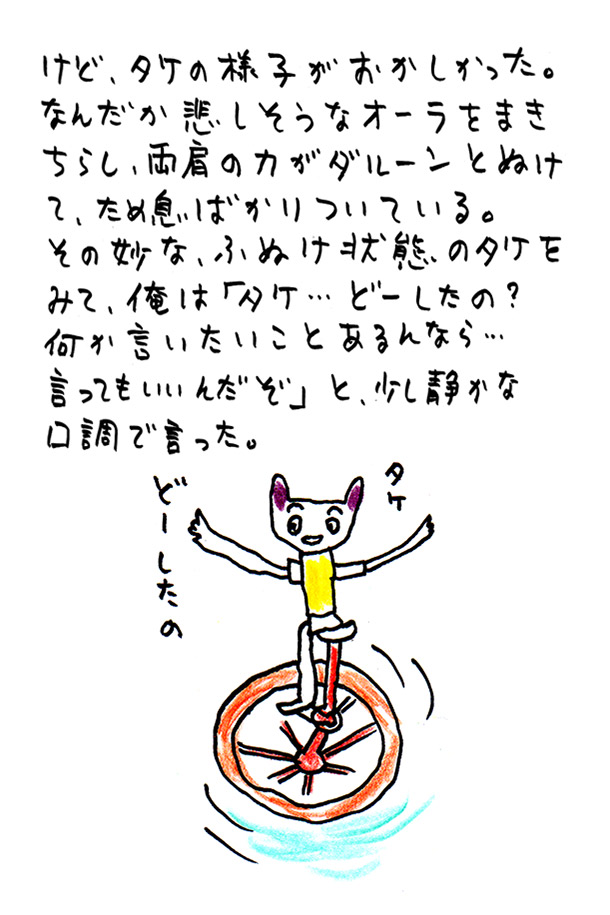 けど、タケの様子がおかしかった。
なんだか悲しそうなオーラをまき
ちらし、両肩の力がダルーンとぬけ
て、ため息ばかりついている。
その妙な、ふぬけ状態のタケを
みて、俺は「タケ…どーしたの?
何か言いたいことあるんなら…
言ってもいいんだぞ」と、少し静かな
口調で言った。
タケ
どーしたの